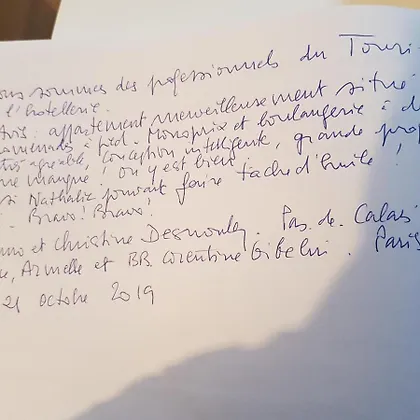 ous sommes des professionnels du Touri
l'hotellerie.
Avis: appartement merveilleusement situe
à pied. Monoprix et boulangerie à d
très agréable, conception intelligente, grande prop
ne manque! on y est bien.
si Nathalie pouvait faire tache d'huile!
. Bravo! Bravo!
et Christine Desmoulez. Pas. de. Calais
Armelle et BB. Corentine Gibelin. Paris
21 octobre 2019